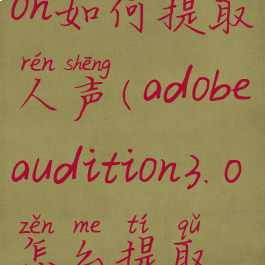 on如何提取
rén shēng
人声(adobe
audition3.0
zěn me tí qǔ
怎么提取